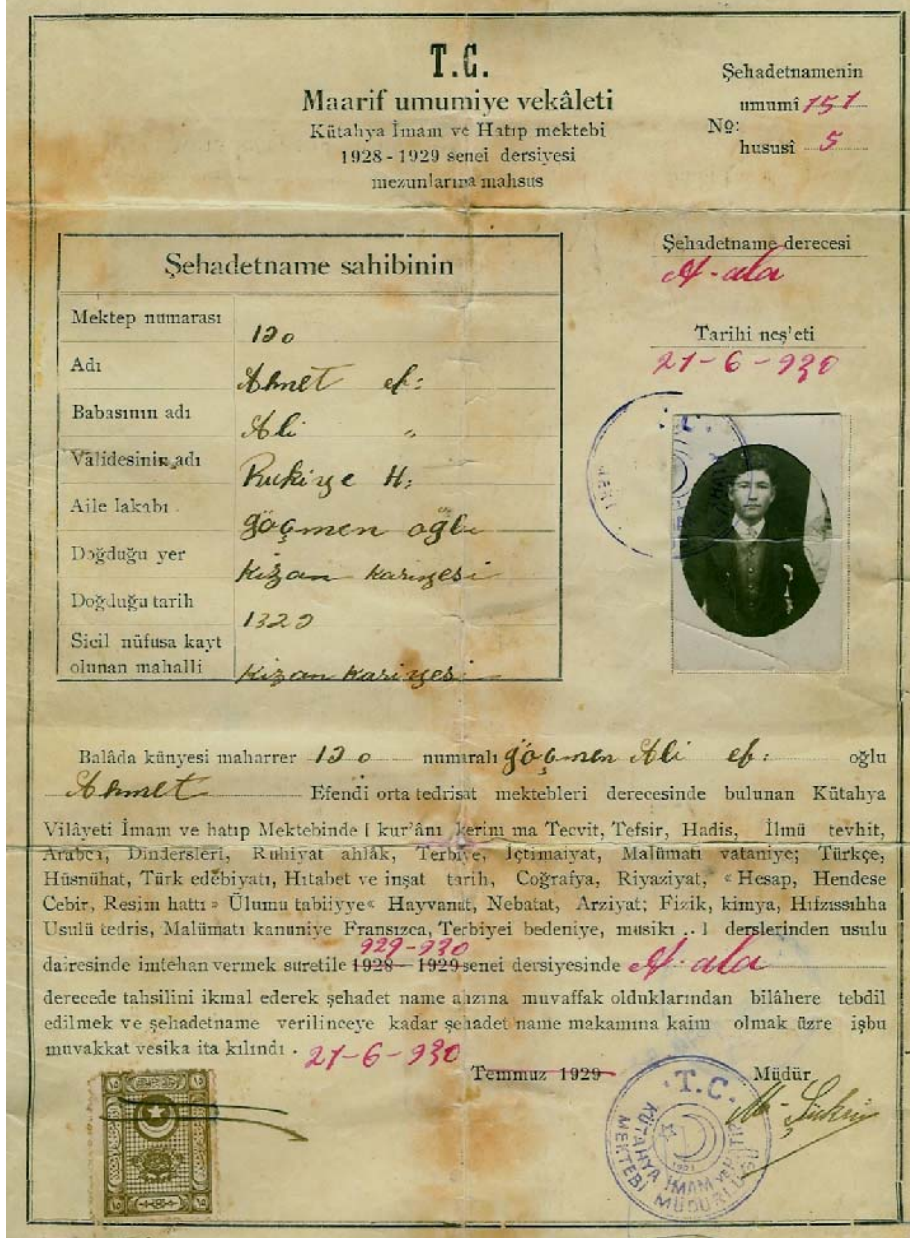 T.C.
Maarif umumiye vekâleti
Kütahya İmam ve Hatıp mektebi
1928 - 1929 senei dersiyesi
mezunlarına mahsus
Şehadetnamenin
umumî 151
No:
hususî 5
Şehadetname derecesi
A-ala
Tarihi neş'eti
21-6-930
Şehadetname sahibinin
Mektep numarası 120
Adı Ahmet ef:
Babasının adı Ali "
Vâlidesinin adı Rukiyye H:
Aile lakabı göçmen oğlu
Doğduğu yer Kızan kariyesi
Doğduğu tarih 1320
Sicil nüfusa kayt
olunan mahalli Kızan kariyesi
Balâda künyesi maharrer 120 numıralı göçmen Ali ef: oğlu
Ahmet Efendi orta tedrisat mektebleri derecesinde bulunan Kütahya
Vilâyeti İmam ve hatıp Mektebinde [ kur'ânı kerim ma Tecvit, Tefsir, Hadis, İlmü tevhit,
Arabca, Dindersleri, Ruhiyat ahlâk, Terbiye, İçtimaiyat, Malümatı vataniye; Türkçe,
Hüsnühat, Türk edebiyatı, Hıtabet ve inşat tarih, Coğrafya, Riyaziyat, « Hesap, Hendese
Cebir, Resim hattı » Ülumu tabiiyye« Hayvanat, Nebatat, Arziyat; Fizik, kimya, Hıfzıssıhha
Usulü tedris, Malümatı kanuniye Fransızca, Terbiyei bedeniye, musikı . . ] derslerinden usulu
929-930
dairesinde imtehan vermek suretile 1928 - 1929 senei dersiyesinde A-ala
derecede tahsilini ikmal ederek şehadet name ahzına muvaffak olduklarından bilâhere tebdil
edilmek ve şehadetname verilinceye kadar şehadet name makamına kaim olmak üzre işbu
muvakkat vesika ita kılındı . 21-6-930
Temmuz 1929
Müdür
M. Şükrü
T.C.
KÜTAHYA İMAM ve HATIP
MEKTEBİ MÜDÜRLÜĞÜ